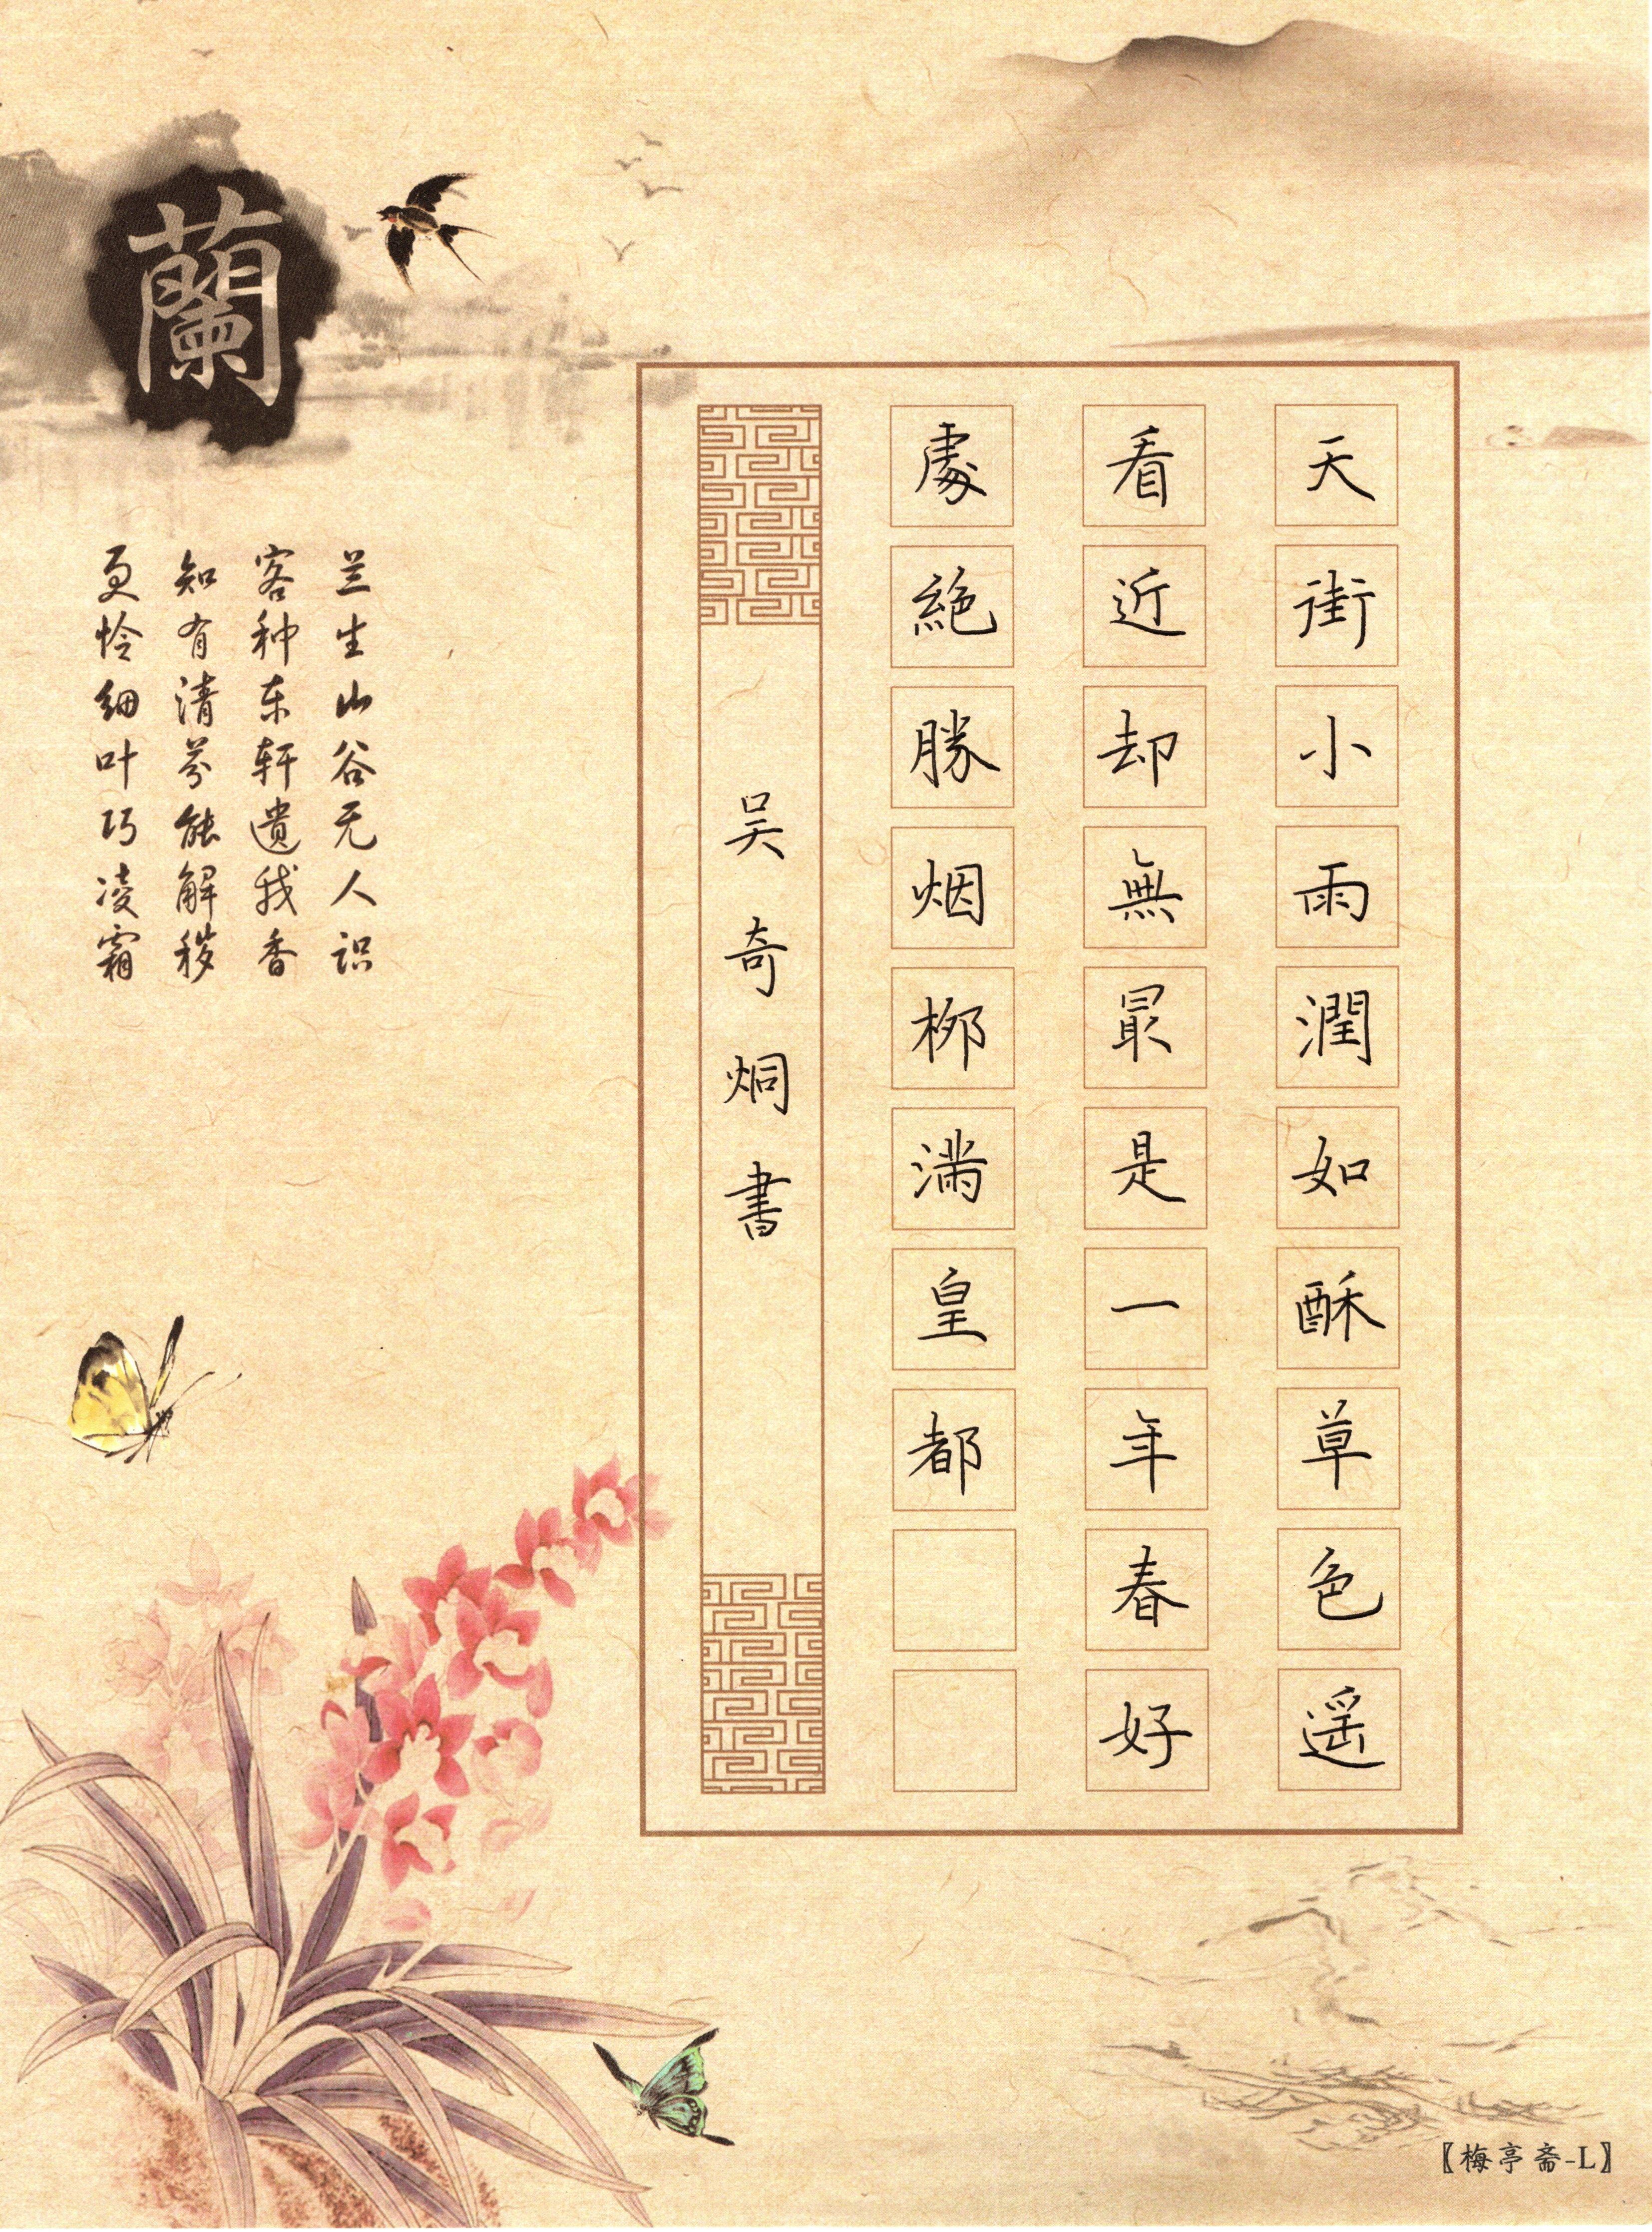 天街小雨潤如酥草色遥
看近却無最是一年春好
處絕勝烟柳滿皇都
吴奇炯書
蘭
兰生山谷无人识
客种东轩遗我香
知有清芬能解秽
更怜细叶巧凌霜
〖梅亭斋-L〗